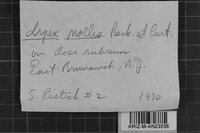 Irpex mollis Berk. et Curt.
on Acer rubrum
East Brunswick, N.J.
S. Ristich #2 1970
ARIZ-M-AN23536